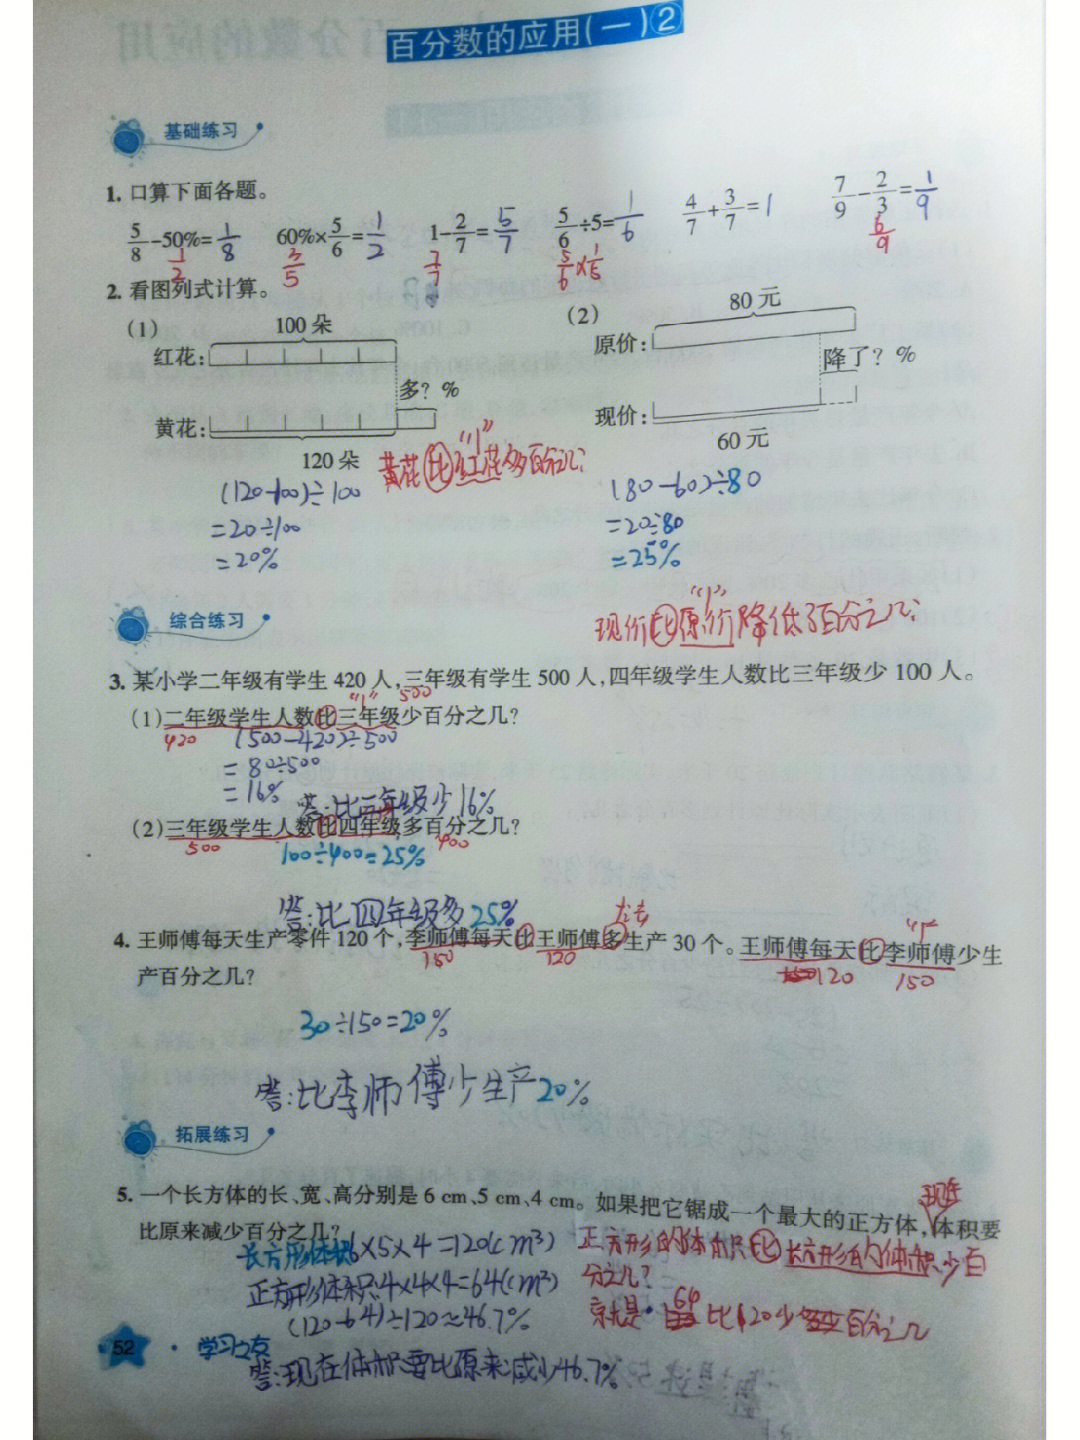 百分数的应用(一)②
基础练习
1. 口算下面各题。
5/8-50%=1/8 60%×5/6=1/2 1-2/7=5/7 5/6÷5=1/6 4/7+3/7=1 7/9-2/3=1/9
1/2 3/5 7/7 5/6×1/5 6/9
2. 看图列式计算。
(1) 100朵 (2) 80元
红花: 原价: 降了?%
多?%
黄花: 现价:
120朵 60元
黄花比红花多百分之几? "1"
(120-100)÷100 (80-60)÷80
=20÷100 =20÷80
=20% =25%
综合练习
现价比原价降低了百分之几? "1"
3. 某小学二年级有学生420人,三年级有学生500人,四年级学生人数比三年级少100人。
"1" 500
(1)二年级学生人数比三年级少百分之几?
420 (500-420)÷500
=80÷500
=16% 答:比三年级少16%
(2)三年级学生人数比四年级多百分之几?
500 100÷400=25% 400
答:比四年级多25%
4. 王师傅每天生产零件120个,李师傅每天比王师傅多生产30个。王师傅每天比李师傅少生
150 120 "1" 120 150
产百分之几?
30÷150=20%
答:比李师傅少生产20%
拓展练习
5. 一个长方体的长、宽、高分别是6 cm、5 cm、4 cm。如果把它锯成一个最大的正方体,现在体积要
比原来减少百分之几?
长方形体积6×5×4=120(cm³) 正方形的体积比长方形的体积少百
正方形体积4×4×4=64(cm³) 分之几?
(120-64)÷120≈46.7% 就是64比120少百分之几
52 · 学习之友
答:现在体积要比原来减少46.7%